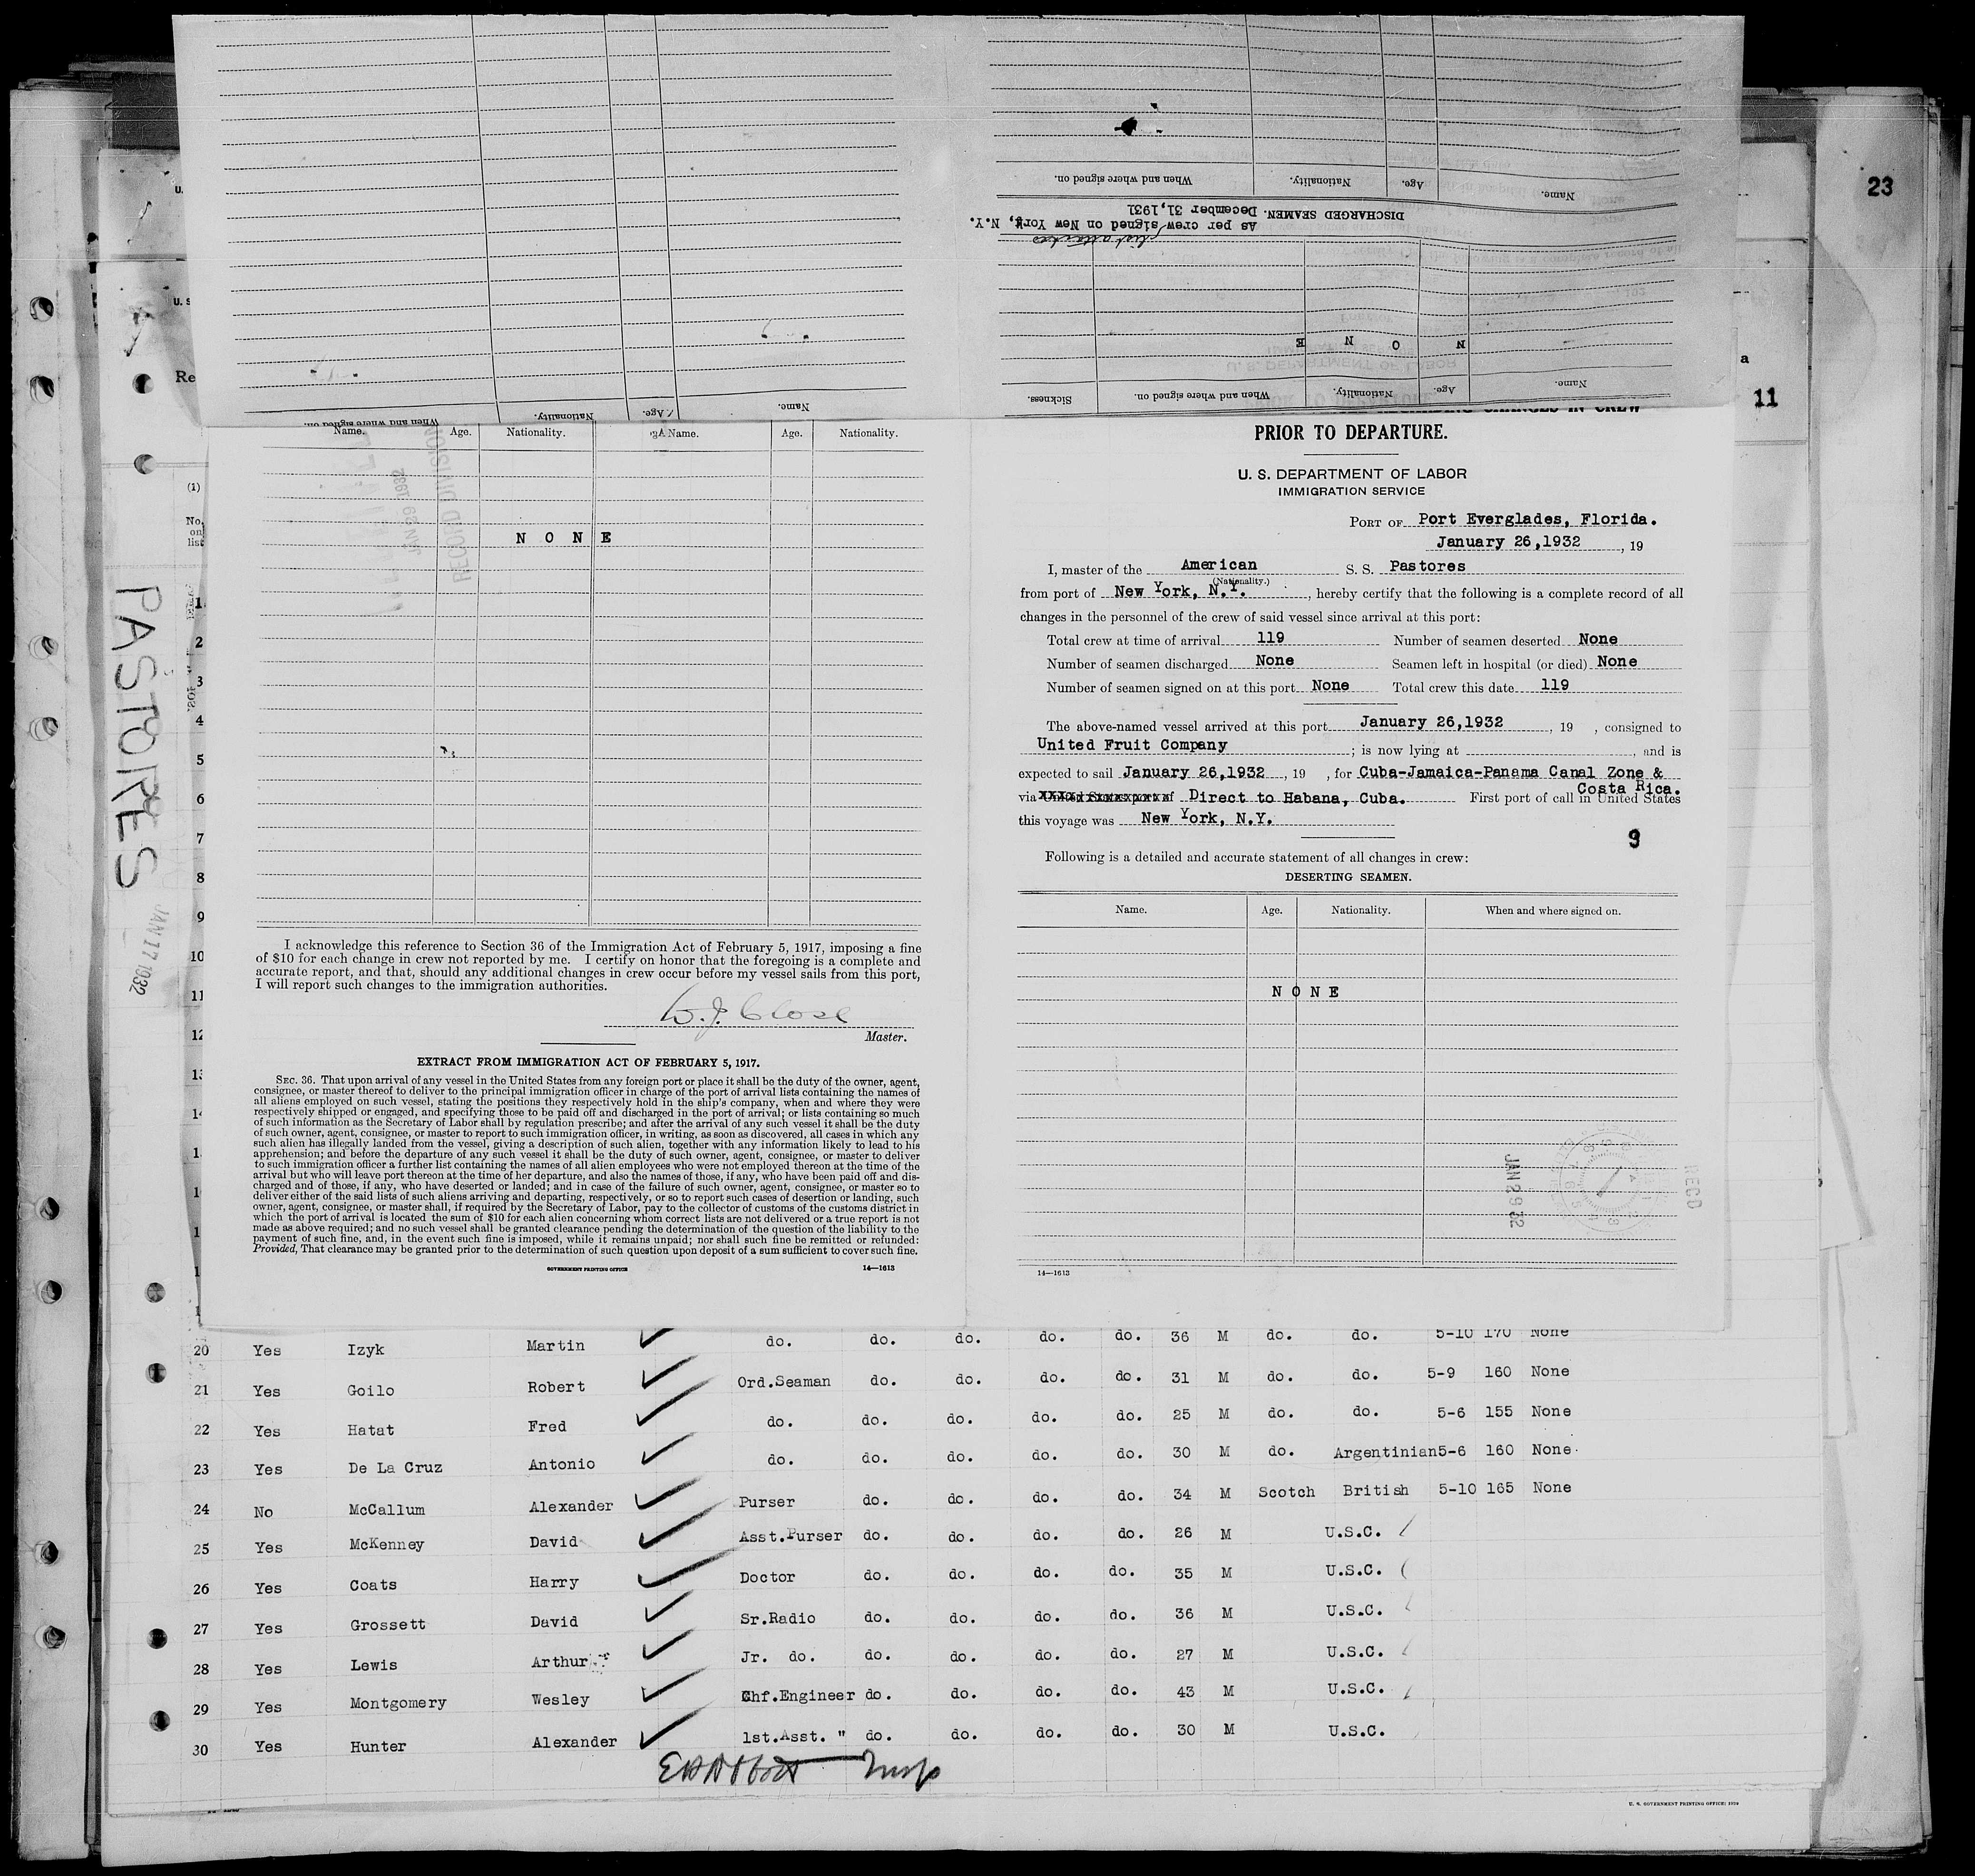 Name. Age. Nationality. When and where signed on.
DISCHARGED SEAMEN.
As per crew signed on New York, N.Y. December 31, 1931
list attached
N O N E
Name. Age. Nationality. When and where signed on. Sickness.
Name. Age. Nationality. When and where signed on.
23
U.
U. S
Re
a
11
(1)
No. on list
PASTORES
JAN 17 1932
1
2
3
4
5
6
7
8
9
10
11
12
Name. Age. Nationality. Name. Age. Nationality.
RECORD DIVISION
JAN 29 1932
N O N E
I acknowledge this reference to Section 36 of the Immigration Act of February 5, 1917, imposing a fine
of $10 for each change in crew not reported by me. I certify on honor that the foregoing is a complete and
accurate report, and that, should any additional changes in crew occur before my vessel sails from this port,
I will report such changes to the immigration authorities.
W. J. Close
Master.
EXTRACT FROM IMMIGRATION ACT OF FEBRUARY 5, 1917.
SEC. 36. That upon arrival of any vessel in the United States from any foreign port or place it shall be the duty of the owner, agent,
consignee, or master thereof to deliver to the principal immigration officer in charge of the port of arrival lists containing the names of
all aliens employed on such vessel, stating the positions they respectively hold in the ship's company, when and where they were
respectively shipped or engaged, and specifying those to be paid off and discharged in the port of arrival; or lists containing so much
of such information as the Secretary of Labor shall by regulation prescribe; and after the arrival of any such vessel it shall be the duty
of such owner, agent, consignee, or master to report to such immigration officer, in writing, as soon as discovered, all cases in which any
such alien has illegally landed from the vessel, giving a description of such alien, together with any information likely to lead to his
apprehension; and before the departure of any such vessel it shall be the duty of such owner, agent, consignee, or master to deliver
to such immigration officer a further list containing the names of all alien employees who were not employed thereon at the time of the
arrival but who will leave port thereon at the time of her departure, and also the names of those, if any, who have been paid off and dis-
charged and of those, if any, who have deserted or landed; and in case of the failure of such owner, agent, consignee, or master so to
deliver either of the said lists of such aliens arriving and departing, respectively, or so to report such cases of desertion or landing, such
owner, agent, consignee, or master shall, if required by the Secretary of Labor, pay to the collector of customs of the customs district in
which the port of arrival is located the sum of $10 for each alien concerning whom correct lists are not delivered or a true report is not
made as above required; and no such vessel shall be granted clearance pending the determination of the question of the liability to the
payment of such fine, and, in the event such fine is imposed, while it remains unpaid; nor shall such fine be remitted or refunded:
Provided, That clearance may be granted prior to the determination of such question upon deposit of a sum sufficient to cover such fine.
GOVERNMENT PRINTING OFFICE 14—1613
PRIOR TO DEPARTURE.
U. S. DEPARTMENT OF LABOR
IMMIGRATION SERVICE
PORT OF Port Everglades, Florida.
January 26,1932, 19
I, master of the American S. S. Pastores
(Nationality.)
from port of New York, N.Y., hereby certify that the following is a complete record of all
changes in the personnel of the crew of said vessel since arrival at this port:
Total crew at time of arrival 119 Number of seamen deserted None
Number of seamen discharged None Seamen left in hospital (or died) None
Number of seamen signed on at this port None Total crew this date 119
The above-named vessel arrived at this port January 26,1932, 19 , consigned to
United Fruit Company ; is now lying at , and is
expected to sail January 26,1932, 19 , for Cuba-Jamaica-Panama Canal Zone &
Costa Rica.
via Direct to Habana, Cuba. First port of call in United States
this voyage was New York, N.Y.
9
Following is a detailed and accurate statement of all changes in crew:
DESERTING SEAMEN.
Name. Age. Nationality. When and where signed on.
N O N E
JAN 29 32
RECD
14—1613
20 Yes Izyk Martin do. do. do. do. do. 36 M do. do. 5-10 170 None
21 Yes Goilo Robert Ord.Seaman do. do. do. do. 31 M do. do. 5-9 160 None
22 Yes Hatat Fred do. do. do. do. do. 25 M do. do. 5-6 155 None
23 Yes De La Cruz Antonio do. do. do. do. do. 30 M do. Argentinian 5-6 160 None
24 No McCallum Alexander Purser do. do. do. do. 34 M Scotch British 5-10 165 None
25 Yes McKenney David Asst.Purser do. do. do. do. 26 M U.S.C.
26 Yes Coats Harry Doctor do. do. do. do. 35 M U.S.C.
27 Yes Grossett David Sr.Radio do. do. do. do. 36 M U.S.C.
28 Yes Lewis Arthur Jr. do. do. do. do. do. 27 M U.S.C.
29 Yes Montgomery Wesley Chf.Engineer do. do. do. do. 43 M U.S.C.
30 Yes Hunter Alexander 1st.Asst. " do. do. do. do. 30 M U.S.C.
U. S. GOVERNMENT PRINTING OFFICE: